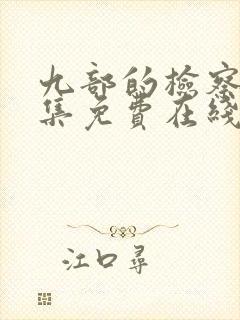 九部的检察
集免费在线
江口寻